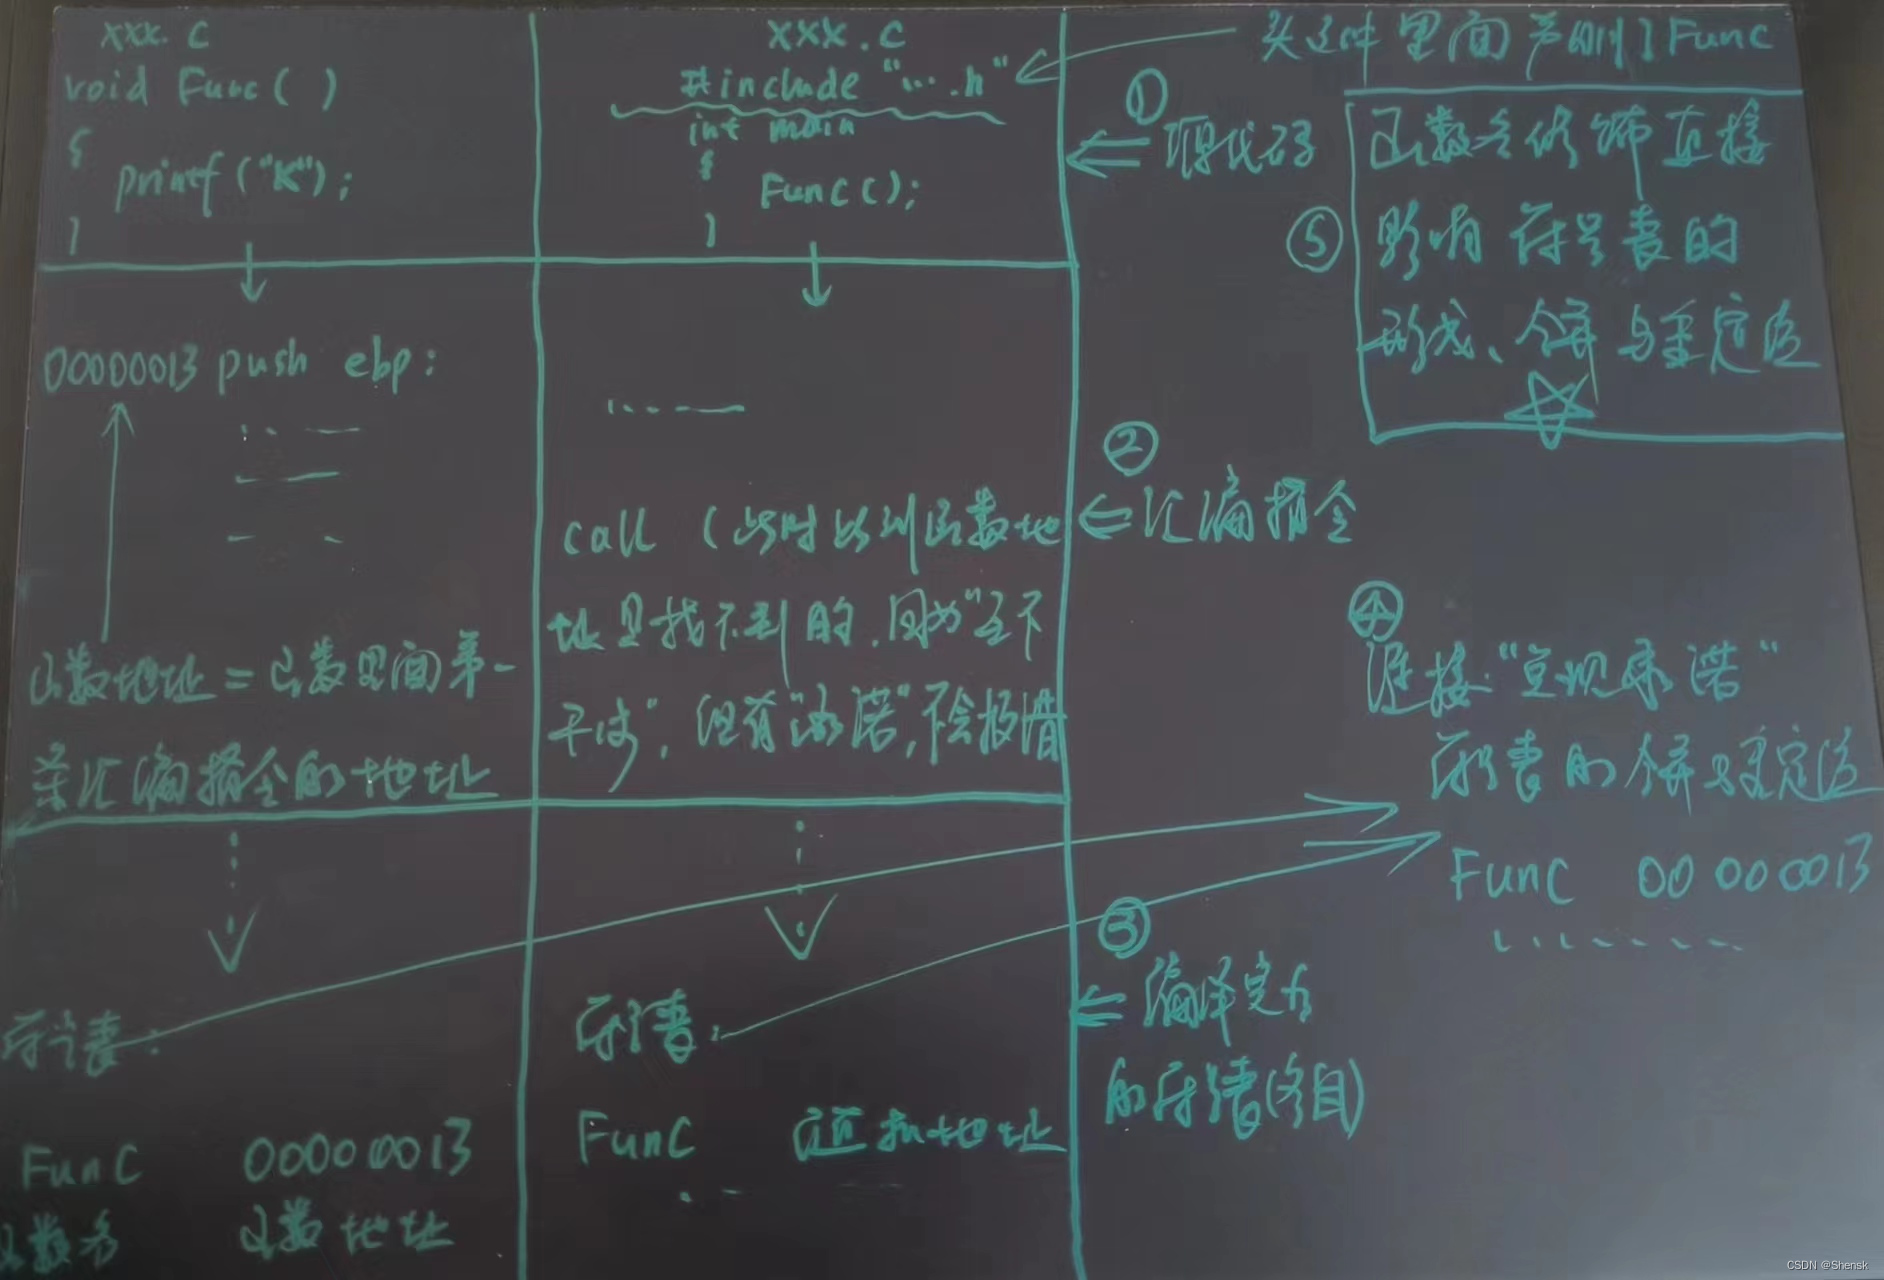 xxx.c
void Func()
{
printf("K");
}
xxx.c
#include "....h"
int main
{
Func();
}
头文件里面声明了Func
① 源代码
⑤ 函数名修饰直接
影响符号表的
形成、合并与重定位
00000013 push ebp:
函数地址=函数里面第一
条汇编指令的地址
call (此时此刻函数地
址是找不到的,因为"互不
干涉",但有"承诺",不会报错
② 汇编指令
④
连接"兑现承诺"
符号表的合并与重定位
Func 00000013
符号表:
Func 00000013
函数名 函数地址
符号表:
Func 地址
③
编译完为
的符号表(各自)
CSDN @Shensk